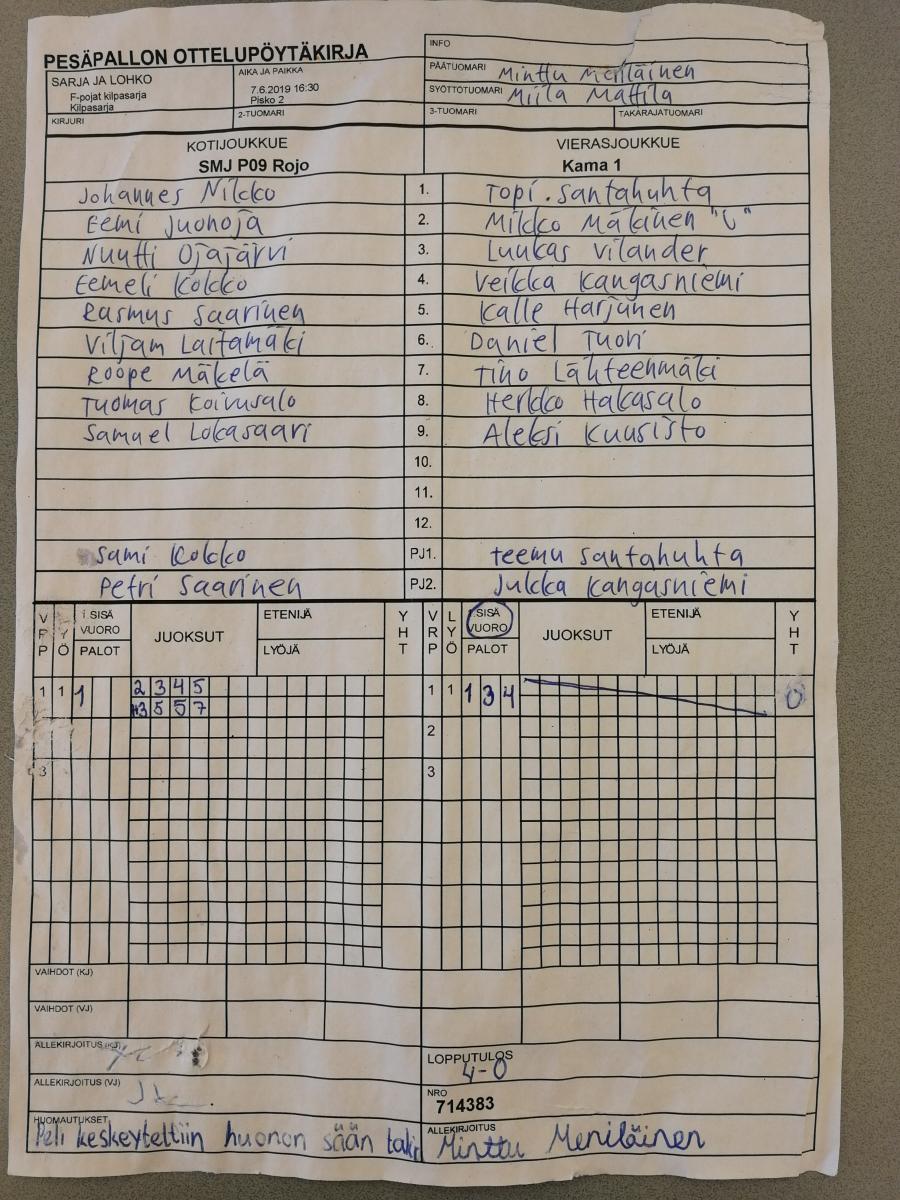 PESÄPALLON OTTELUPÖYTÄKIRJA
INFO
SARJA JA LOHKO
F-pojat kilpasarja
Kilpasarja
AIKA JA PAIKKA
7.6.2019 16:30
Pisko 2
PÄÄTUOMARI Minttu Meriläinen
SYÖTTOTUOMARI Miila Mattila
KIRJURI 2-TUOMARI 3-TUOMARI TAKARAJATUOMARI
KOTIJOUKKUE VIERASJOUKKUE
SMJ P09 Rojo Kama 1
Johannes Nikko 1. Topi.santahuhta
Eemi Juonoja 2. Mikko Mäkinen "C"
Nuutti Ojajärvi 3. Luukas Vilander
Eemeli Kokko 4. Veikka Kangasniemi
Rasmus Saarinen 5. Kalle Harjunen
Viljam Laitamäki 6. Daniel Tuori
Roope Mäkelä 7. Tino Lähteenmäki
Tuomas Koivusalo 8. Herkko Hakasalo
Samuel Lokasaari 9. Aleksi Kuusisto
10.
11.
12.
Sami Kokko PJ1. teemu santahuhta
Petri Saarinen PJ2. Jukka Kangasniemi
V P P L Y Ö 1.SISÄ VUORO PALOT JUOKSUT ETENIJÄ LYÖJÄ Y H T V R P L Y Ö 1.SISÄ VUORO PALOT JUOKSUT ETENIJÄ LYÖJÄ Y H T
1 1 1 2 3 4 5 1 1 1 3 4 0
3 5 5 7
2
3 3
VAIHDOT (KJ)
VAIHDOT (VJ)
ALLEKIRJOITUS (KJ)
LOPPUTULOS
4-0
ALLEKIRJOITUS (VJ)
NRO
714383
HUOMAUTUKSET
Peli keskeyteltiin huonon sään takia
ALLEKIRJOITUS
Minttu Meriläinen